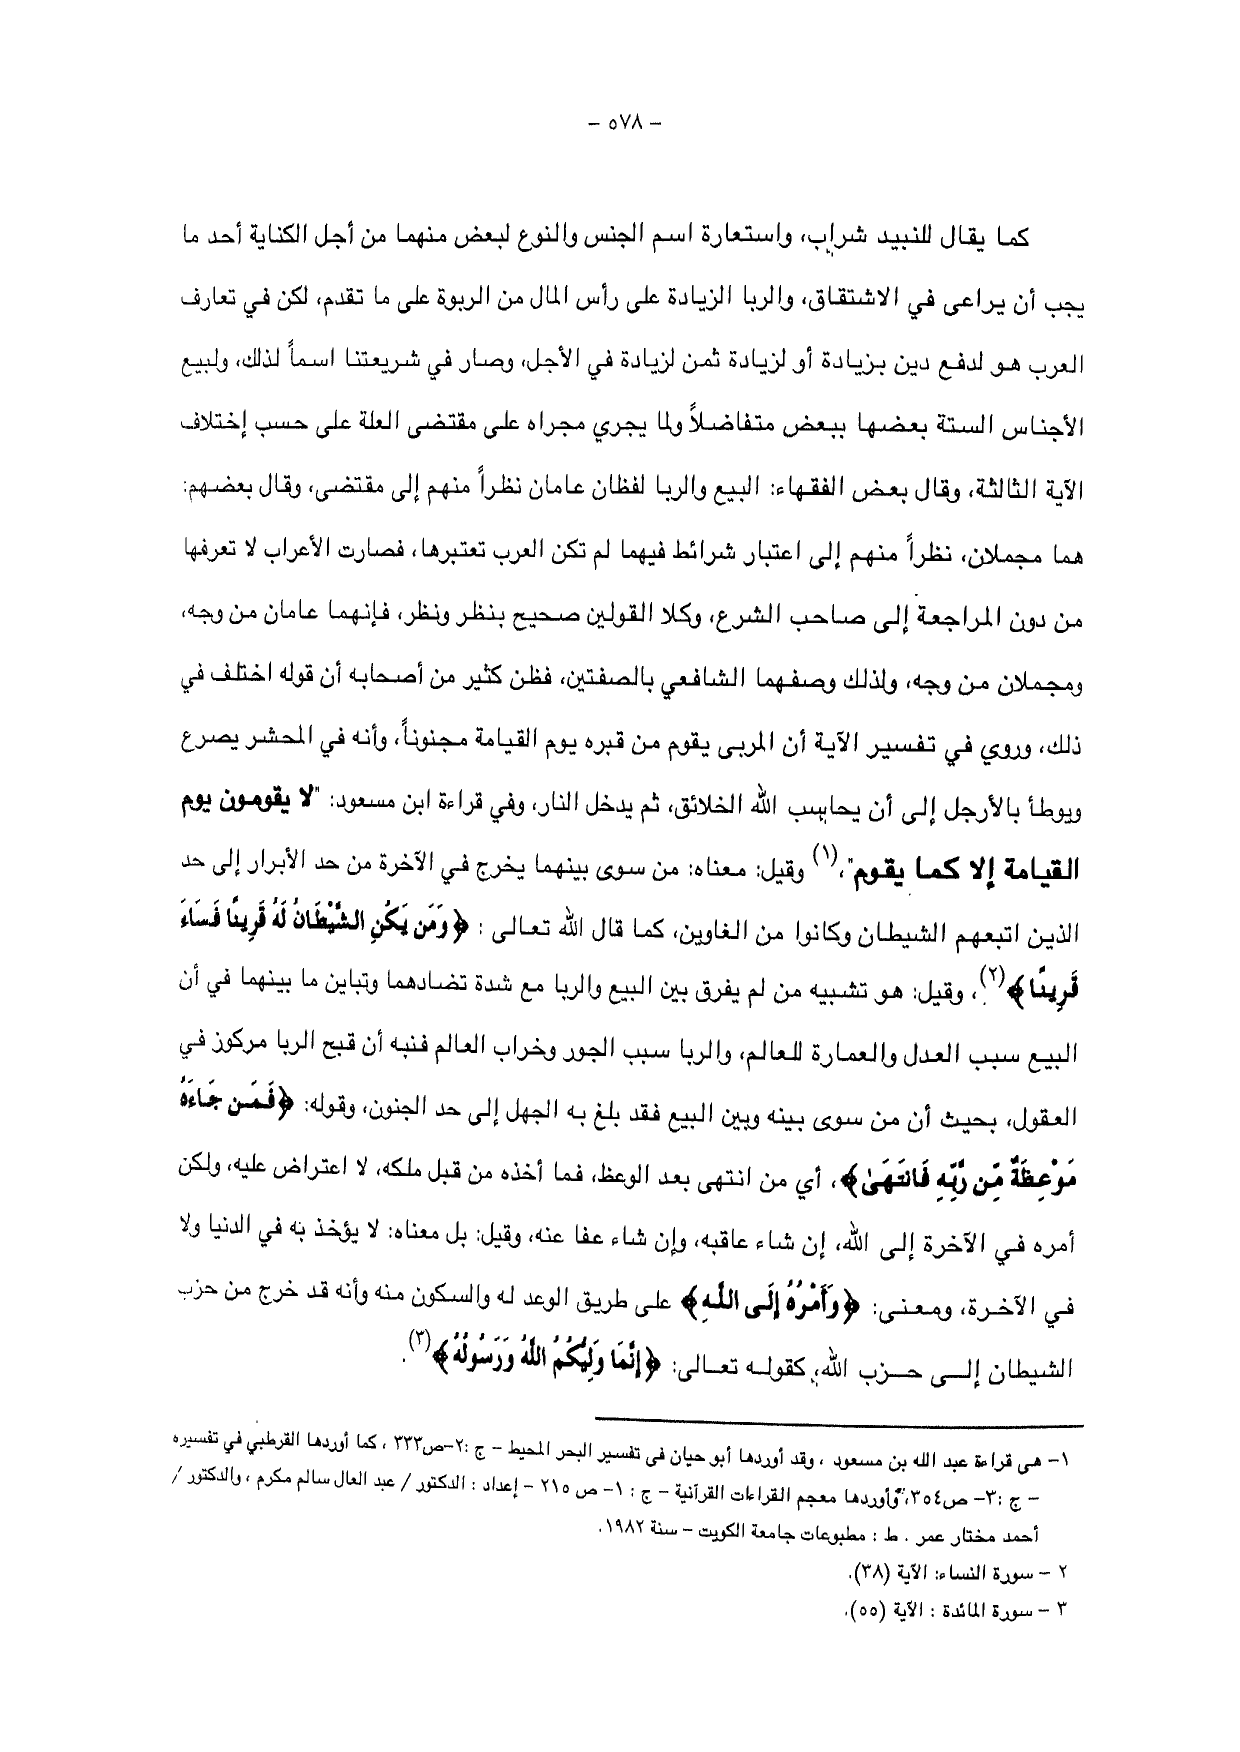 – ٥٧٨ –
كما يقال للنبيد شراب، واستعارة اسم الجنس والنوع لبعض منهما من أجل الكناية أحد ما
يجب أن يراعى في الاشتقاق، والربا الزيادة على رأس المال من الربوة على ما تقدم، لكن في تعارف
العرب هو لدفع دين بزيادة أو لزيادة ثمن لزيادة في الأجل، وصار في شريعتنا اسماً لذلك، ولبيع
الأجناس الستة بعضها ببعض متفاضلاً ولما يجري مجراه على مقتضى العلة على حسب إختلاف
الآية الثالثة، وقال بعض الفقهاء: البيع والربا لفظان عامان نظراً منهم إلى مقتضى، وقال بعضهم:
هما مجملان، نظراً منهم إلى اعتبار شرائط فيهما لم تكن العرب تعتبرها، فصارت الأعراب لا تعرفها
من دون المراجعة إلى صاحب الشرع، وكلا القولين صحيح بنظر ونظر، فإنهما عامان من وجه،
ومجملان من وجه، ولذلك وصفهما الشافعي بالصفتين، فظن كثير من أصحابه أن قوله اختلف في
ذلك، وروي في تفسير الآية أن المربى يقوم من قبره يوم القيامة مجنوناً، وأنه في المحشر يصرع
ويوطأ بالأرجل إلى أن يحاسب الله الخلائق، ثم يدخل النار، وفي قراءة ابن مسعود: "لا يقومون يوم
القيامة إلا كما يقوم"،(١) وقيل: معناه: من سوى بينهما يخرج في الآخرة من حد الأبرار إلى حد
الذين اتبعهم الشيطان وكانوا من الغاوين، كما قال الله تعالى : ﴿وَمَن يَكُنِ الشَّيْطَانُ لَهُ قَرِينًا فَسَاءَ
قَرِينًا﴾(٢)، وقيل: هو تشبيه من لم يفرق بين البيع والربا مع شدة تضادهما وتباين ما بينهما في أن
البيع سبب العدل والعمارة للعالم، والربا سبب الجور وخراب العالم فنبه أن قبح الربا مركوز في
العقول، بحيث أن من سوى بينه وبين البيع فقد بلغ به الجهل إلى حد الجنون، وقوله: ﴿فَمَن جَاءَهُ
مَوْعِظَةٌ مِّن رَّبِّهِ فَانتَهَىٰ﴾، أي من انتهى بعد الوعظ، فما أخذه من قبل ملكه، لا اعتراض عليه، ولكن
أمره في الآخرة إلى الله، إن شاء عاقبه، وإن شاء عفا عنه، وقيل: بل معناه: لا يؤخذ به في الدنيا ولا
في الآخرة، ومعنى: ﴿وَأَمْرُهُ إِلَى اللَّهِ﴾ على طريق الوعد له والسكون منه وأنه قد خرج من حزب
الشيطان إلى حزب الله، كقوله تعالى: ﴿إِنَّمَا وَلِيُّكُمُ اللَّهُ وَرَسُولُهُ﴾(٣).
١- هى قراءة عبد الله بن مسعود ، وقد أوردها أبو حيان فى تفسير البحر المحيط – ج :٢–ص٣٣٣ ، كما أوردها القرطبي في تفسيره
– ج :٣– ص٣٥٤، وأوردها معجم القراءات القرآنية – ج : ١– ص ٢١٥ – إعداد : الدكتور / عبد العال سالم مكرم ، والدكتور /
أحمد مختار عمر . ط : مطبوعات جامعة الكويت – سنة ١٩٨٢.
٢ – سورة النساء: الآية (٣٨).
٣ – سورة المائدة : الآية (٥٥).